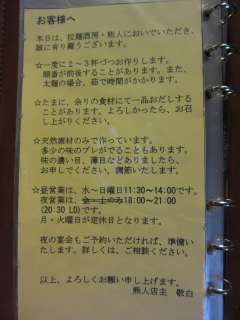 お客様へ
本日は、拉麺酒房・熊人においでいただき、
誠に有り難うございます。
☆一度に2~3杯づつお作りします。
順番が前後することがあります。また、
太麺の場合、茹で時間がかかります。
☆たまに、余りの食材にて一品おだしする
ことがあります。よろしかったら、お召
し上がりください。
☆天然素材のみで作っています。
多少の味のブレがでることもあります。
味の濃い目、薄目などありましたら、
お申しください。調節いたします。
☆昼営業は、水~日曜日11:30~14:00です。
夜営業は、金~土のみ18:00~21:00
(20:30 LO)です。
月・火曜日が定休日となります。
夜の宴会もご予約いただければ、準備い
たします。詳しくは、ご相談ください。
以上、よろしくお願い申し上げます。
熊人店主 敬白